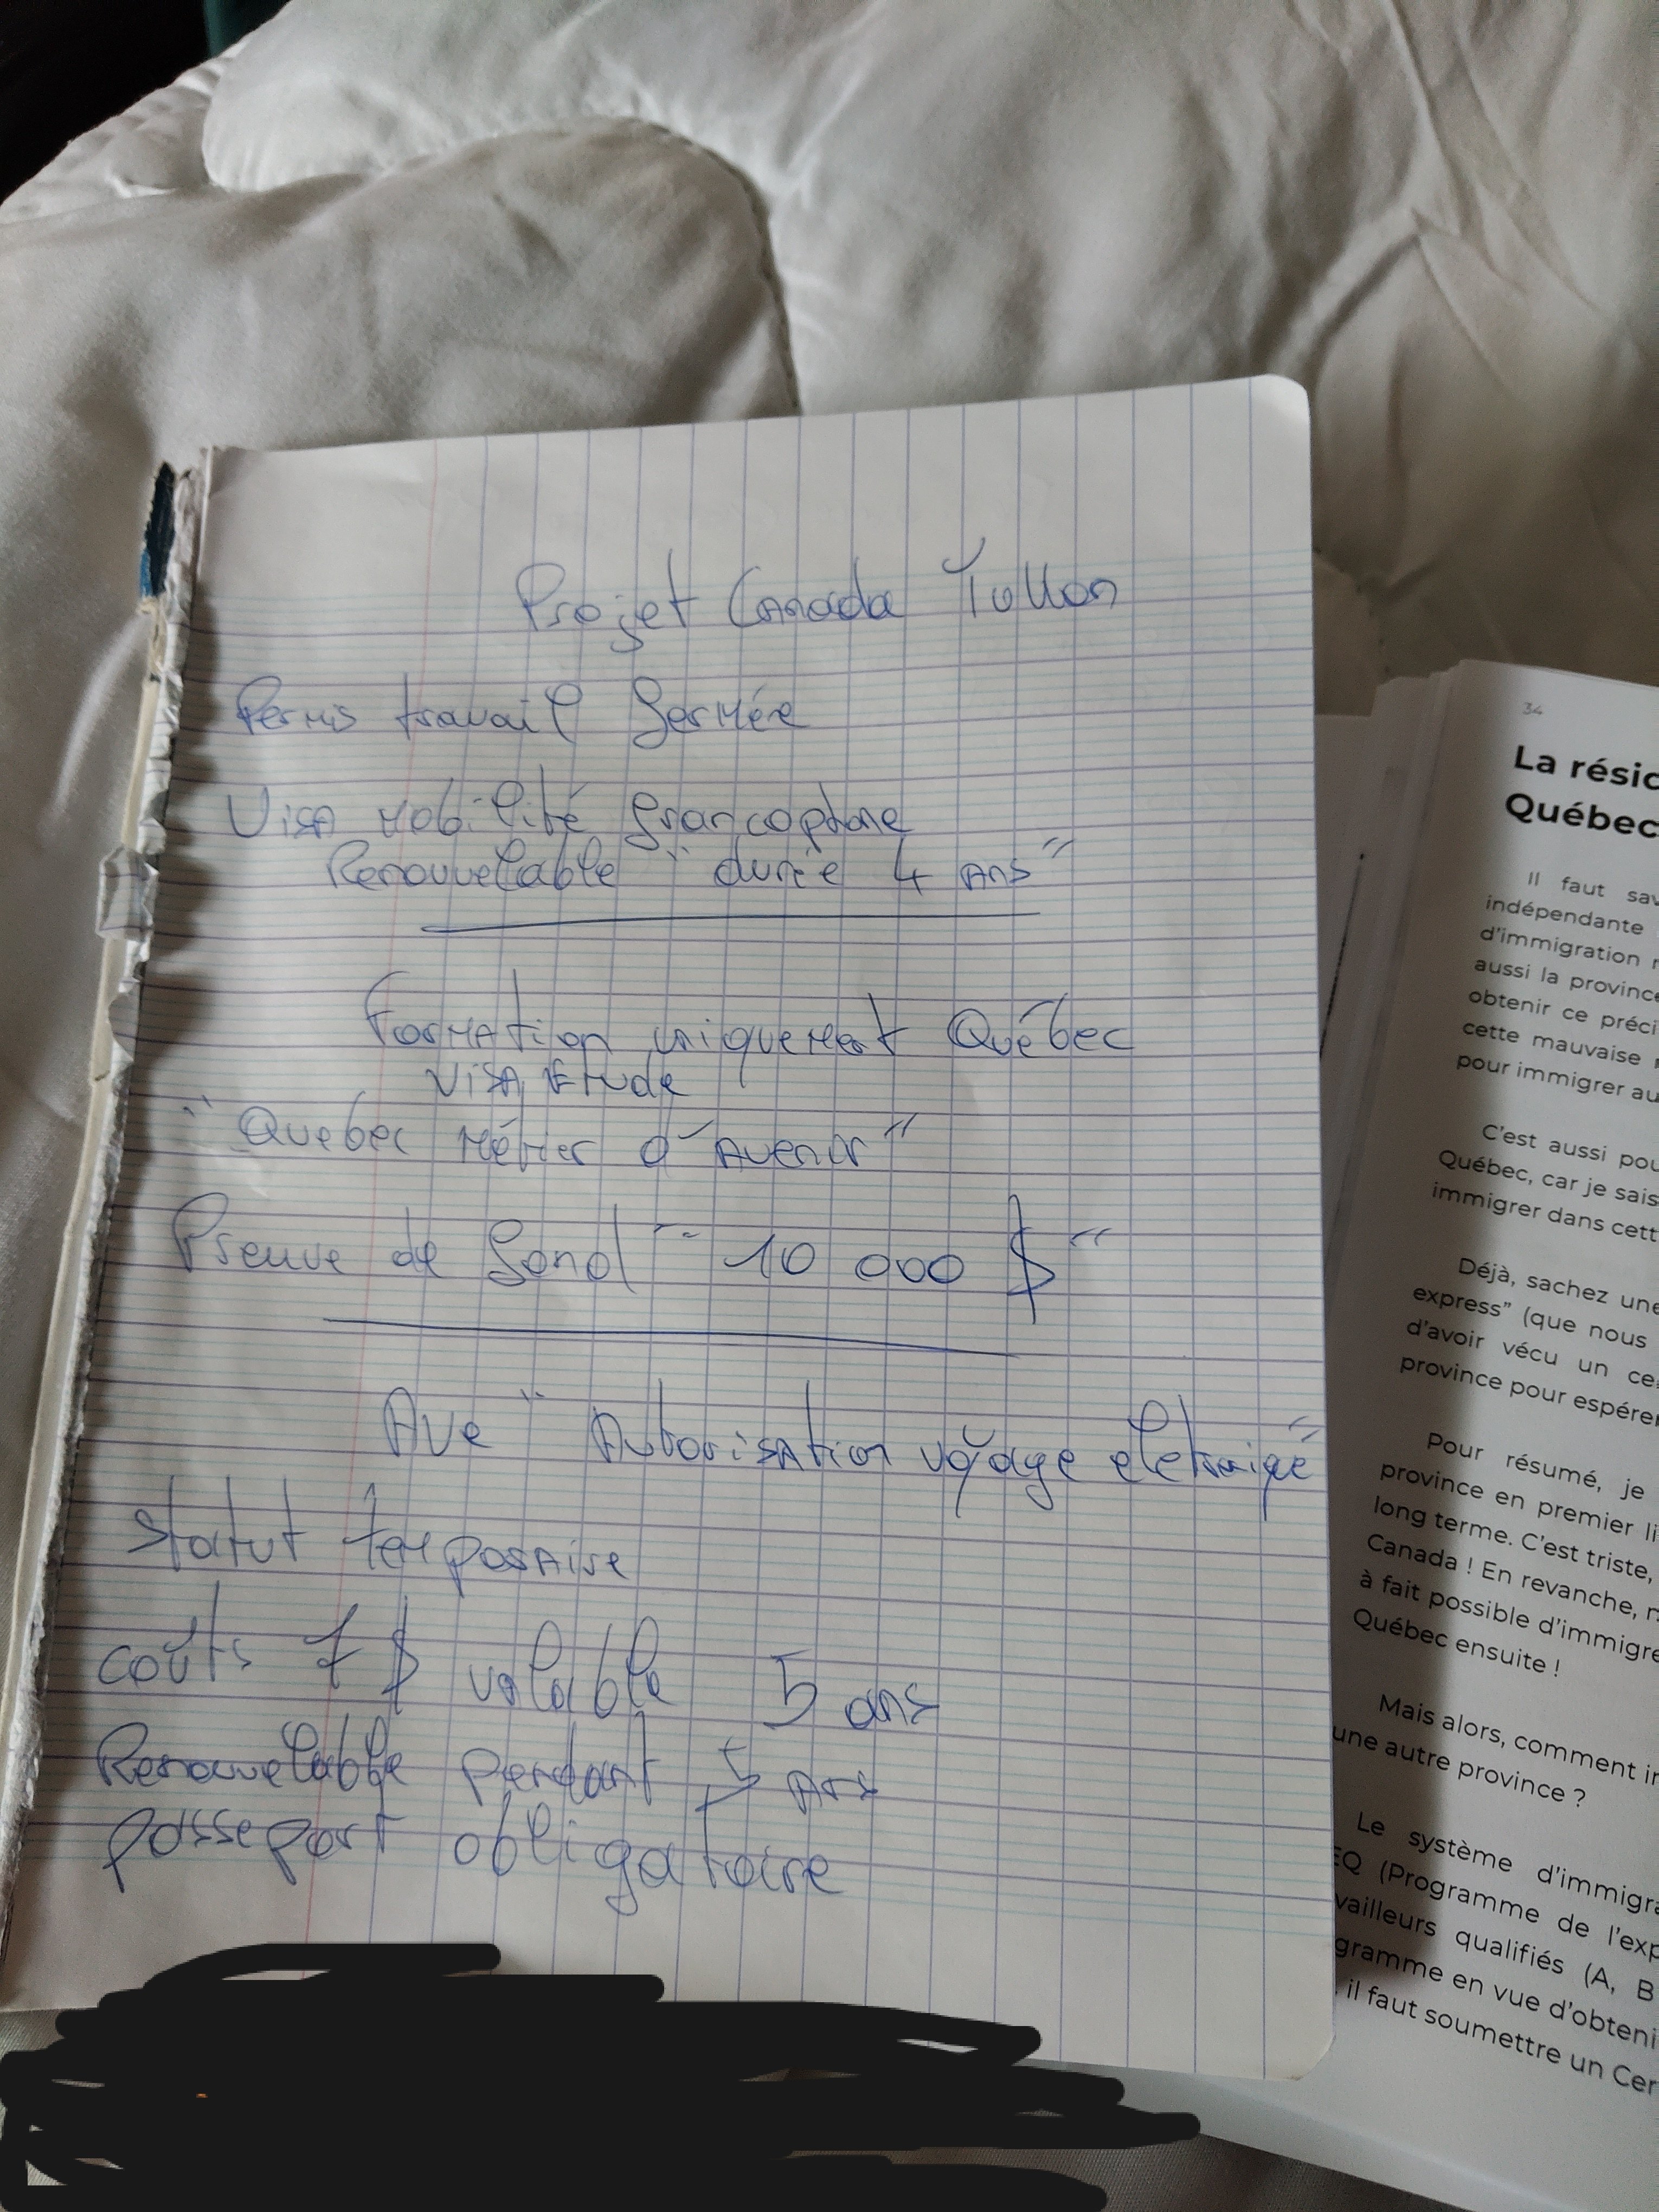 Projet Canada Tullon
Permis travail fermée
Visa mobilité francophone
Renouvelable "durée 4 ans"
Formation uniquement Québec
Visa Etude
"Quebec Métier d'avenir"
Preuve de fond "10 000 $"
Ave "Autorisation voyage
statut temporaire
coûts 7 $ valable 5 ans
Renouvelable pendant 5 Ans
passeport obligatoire
34
La résic
Québec
Il faut sav
indépendante
d'immigration
aussi la province
obtenir ce préci
cette mauvaise
pour immigrer au
C'est aussi pou
Québec, car je sais
immigrer dans cett
Déjà, sachez une
express" (que nous
d'avoir vécu un ce
province pour espére
Pour résumé, je
province en premier li
long terme. C'est triste,
Canada ! En revanche,
à fait possible d'immigre
Québec ensuite !
Mais alors, comment i
une autre province ?
Le système d'immigra
EQ (Programme de l'exp
vailleurs qualifiés (A, B
gramme en vue d'obteni
il faut soumettre un Cer